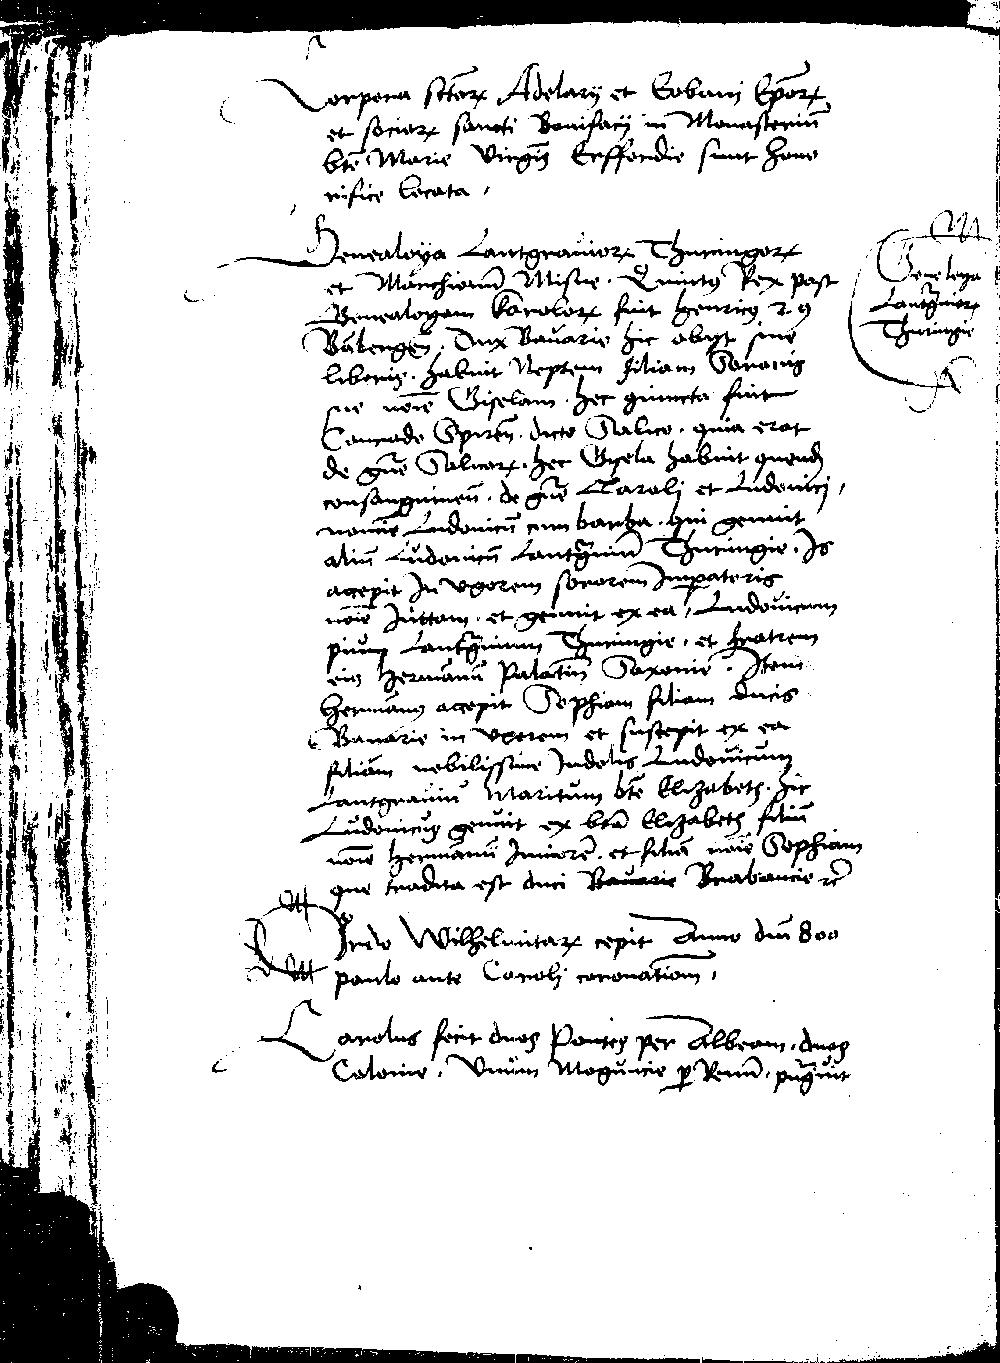 Corpora sctōrꝝ Adelarij et Eobani Epōrꝝ
et sociorꝝ sancti Bonifacij in Monasteriū
bte Marie Virgīs Erffordie sunt hono
rifice locata /
Genealoya Lantgraviorꝝ Thuringorꝝ
et Marchionū Misne . Quintꝯ Rex post
Genealogiam Karolorꝝ fuit Henricꝯ 2. ꝯ
Bābengeñ . Dux Bavarie hic obijt sine
liberis . habuit Neptem filiam Sororis
sue noīe Giselam . hec giuncta fuit
Conrado Spireñ . dicto Salico . quia erat
de gn̄e Salicorꝝ . hec Gisela habuit quend
consanguineū . de gn̄e Karoli et Ludovici /
noīe Ludovicū cum barba . qui genuit
aliū Ludovicū Lantgviū Thuringie . Is
accepit in vxorem sororem Imperatoris
noīe Juttam . et genuit ex ea / Ludovicum
pium Lantgvium Thuringie . et fratrem
eiꝯ Hermanū Palatinū Saxonie . Item
Hermanꝯ accepit Sophiam filiam ducis
Bavarie in vxorem et suscepit ex ea
filium nobilissime Indolis Ludovicum
Lantgraviū Maritum bte Elizabeth . hic
Ludovicus genuit ex bta Elizabeth filiū
noīe Hermanū Juniorē . et filiā noīe Sophiam
que tradita est duci Bavarie Brabancie ⁊c̄
Genealoya
Lantgviorꝝ
Thuringie
Ordo Wilhelmitarꝝ cepit Anno dnī 800
paulo ante Caroli coronationem /
Carolus fecit duos Pontes per Albeam . duos
Colonie . Vnum Moguncie ꝑ Renū .